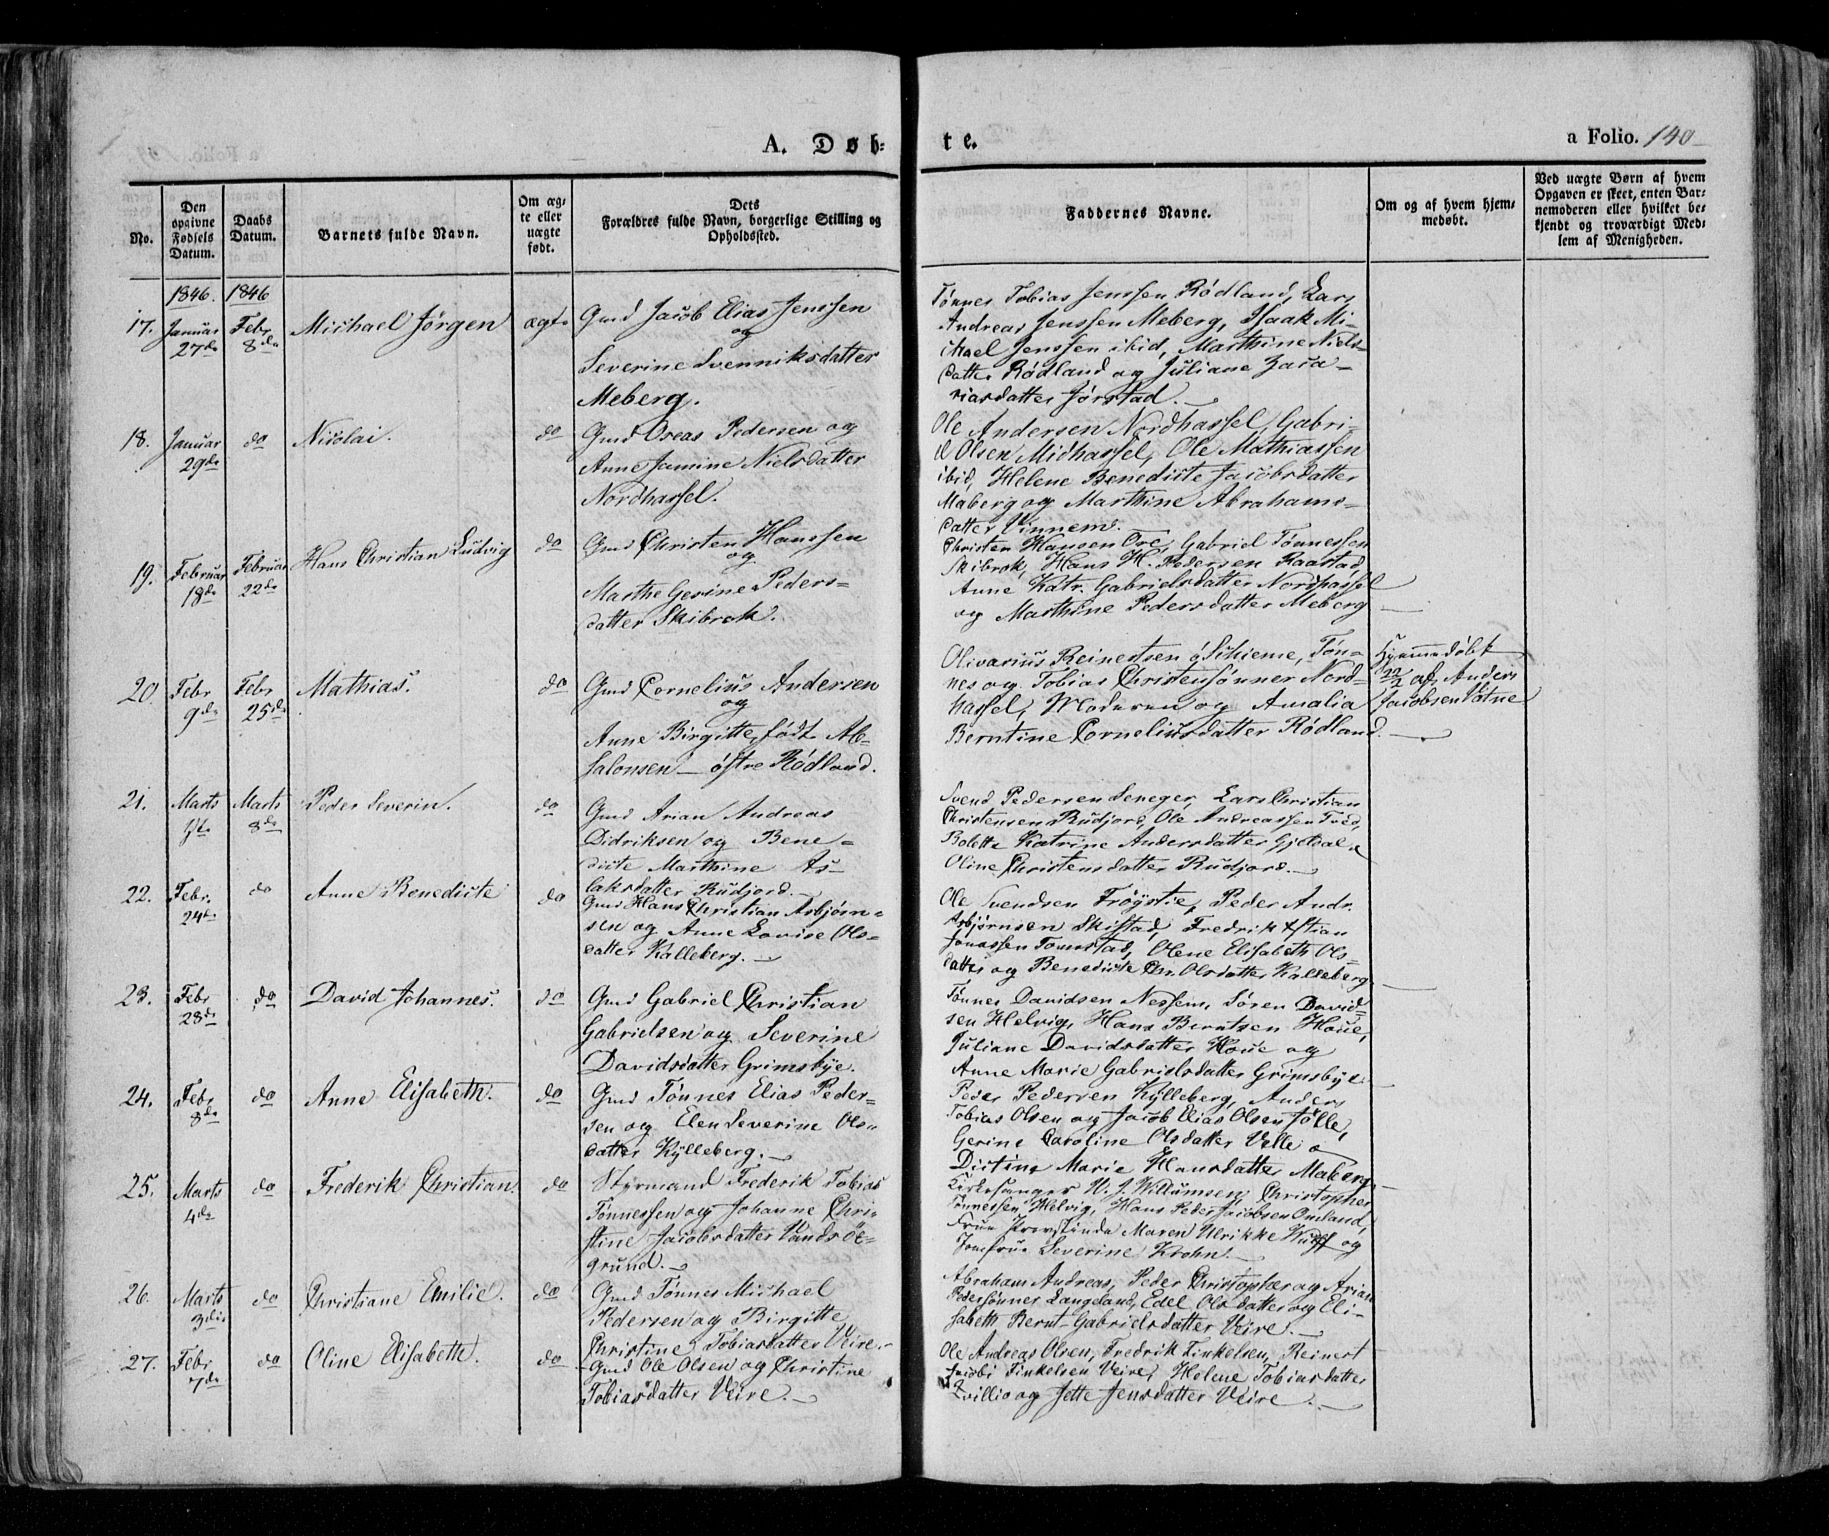 A. Døb-
te.
a Folio. 140
No.
Den
opgivne
Fødsels
Datum.
Daabs
Datum.
Barnets fulde Navn.
Om æg-
te eller
uægte
født.
Dets
Forældres fulde Navn, borgerlige Stilling og
Opholdssted.
Faddernes Navne.
Om og af hvem hjem-
medøbt.
Ved uægte Børn af hvem
Opgaven er skeet, enten Bar-
nemoderen eller hvilket be-
kjendt og troværdigt Med-
lem af Menigheden.
1846. 1846
17. Januar 27de Febr 8de Michael Jörgen ægte
Gmd Jacob Elias Jenssen
og
Severine Svenniksdatter
Meberg.
Tönnes Tobias Jenssen Rödland, Lars
Andreas Jenssen Meberg, Isaak Mi-
chael Jenssen ibid, Marthine Niels-
datter Rödland og Juliane Zaca-
riasdatter Jörstad.
18. Januar 29de do Nicolai. do
Gmd Oseas Pedersen og
Anne Jamine Nielsdatter
Nordhassel.
Ole Andersen Nordhassel, Gabri-
el Olsen Midhassel, Ole Mathiassen
ibid, Helene Benedicte Jacobsdatter
Maberg og Marthine Abrahams-
datter Vinnem.
19. Februar 18de Februar 22de Hans Christian Ludvig do
Gmd Christen Hanssen
og
Marthe Gerine Peders-
datter Skibrok.
Christen Hansen Ore, Gabriel Tönnessen
Skibrok, Hans H. Pedersen Raastad,
Anne Katr. Gabrielsdatter Nordhassel
og Marthine Pedersdatter Meberg
20 Febr 9de Febr 25de Mathias. do
Gmd Cornelius Andersen
og
Anne Birgitte, född Ab-
salonsen - östre Rödland.
Olivarius Reinertsen ö. Schieme, Tön-
nes og Tobias Christensönner Nord-
hassel, Moderen og Amalia
Berntine Corneliusdatter Rödland.
Hjemmedöbt
22/2 af Anders
Jacobsen Vatne
21. Marts Marts 8de Peder Severin. do
Gmd Arian Andreas
Didriksen og Bene-
dicte Marthine As-
laksdatter Rudjord.
Svend Pedersen Seneger, Lars Christian
Christensen Rudjord, Ole Andreassen Tved,
Bolette Katrine Andersdatter Gjeldal,
Oline Christensdatter Rudjord.
22. Febr. 24de do Anne Benedicte do
Gmd Hans Christian Asbjörn-
sen og Anne Lovise Ols-
datter Kalleberg.
Ole Svendsen Fröystie, Peder Andr.
Asbjörnsen Skistad, Fredrik Kstian
Jonassen Tomstad, Olene Elisabeth Ols-
datter og Benedicte Chr. Olsdatter Kalleberg
23. Febr 28de do David Johannes. do
Gmd Gabriel Christian
Gabrielsen og Severine
Davidsdatter Grimsbye.
Tönnes Davidsen Nessem, Sören David-
sen Helvig, Hans Berntsen Houe,
Juliane Davidsdatter Houe og
Anne Marie Gabrielsdatter Grimsbye
24. Febr 8de do Anne Elisabeth. do
Gmd Tönnes Elias Peder-
sen og Elen Severine Ols-
datter Kylleberg.
Peder Pedersen Kylleberg, Anders
Tobias Olsen og Jacob Elias Olsen Jölle,
Gerine Caroline Olsdatter Velle o
Distine Marie Hansdatter Maberg
25. Marts 4de do Frederik Christian. do
Styrmand Frederik Tobias
Tönnessen og Johanne Chri-
stine Jacobsdatter Vandsöe-
grund.
Kirkesanger N. J. Willumsen, Christopher
Tönnessen Helvig, Hans Peder Jacobsen Omland,
Frue Provstinde Maren Ulrikke Wulff og
Jomfrue Severine Krohn.
26. Marts 3die do Christiane Emilie. do
Gmd Tönnes Michael
Pedersen og Birgitte
Christine Tobiasdatter Veire.
Abraham Andreas, Peder Christopher og Arian
Pedersönner Langeland, Edel Olsdatter og Eli-
sabeth Bernt-Gabrielsdatter Veire.
27. Febr 7de do Oline Elisabeth. do
Gmd Ole Olsen og Christine
Tobiasdatter Veire.
Ole Andreas Olsen, Fredrik Finkelsen, Reinert
Jacobi Finkelsen Veire, Helene Tobiasdatter
og Jette Jensdatter Veire.